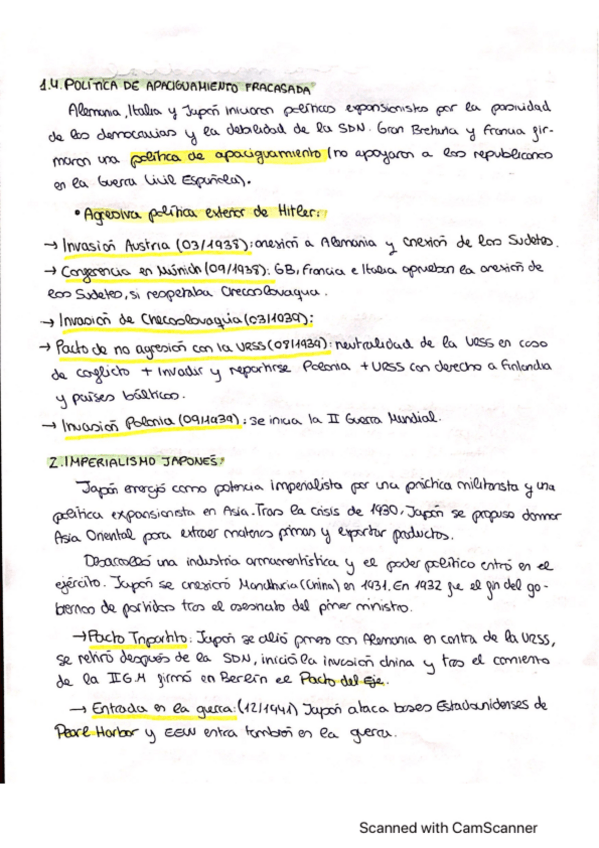 1.4. POLÍTICA DE APACIGUAMIENTO FRACASADA
Alemania, Italia y Japón iniciaron políticas expansionistas por la pasividad
de las democracias y la debilidad de la SDN. Gran Bretaña y Francia fir-
maron una política de apaciguamiento (no apoyaron a los republicanos
en la Guerra Civil Española).
• Agresiva política exterior de Hitler:
→ Invasión Austria (03/1938): anexión a Alemania y anexión de los Sudetes.
→ Congerencia en Múnich (09/1938): GB, Francia e Italia aprueban la anexión de
los Sudetes, si respetaba Checoslovaquia.
→ Invasión de Checoslovaquia (03/1939):
→ Pacto de no agresión con la URSS (08/1939): neutralidad de la URSS en caso
de conflicto + Invadir y repartirse Polonia + URSS con derecho a Finlandia
y países bálticos.
→ Invasión Polonia (09/1939): se inicia la II Guerra Mundial.
2. IMPERIALISMO JAPONÉS:
Japón emergió como potencia imperialista por una práctica militarista y una
política expansionista en Asia. Tras la crisis de 1930, Japón se propuso dominar
Asia Oriental para extraer materias primas y exportar productos.
Desarrolló una industria armamentística y el poder político entró en el
ejército. Japón se anexionó Manchuria (China) en 1931. En 1932 fue el fin del go-
bierno de partidos tras el asesinato del primer ministro.
→ Pacto Tripartito: Japón se alió primero con Alemania en contra de la URSS,
se retiró después de la SDN, inició la invasión china y tras el comienzo
de la II G.M firmó en Berlín el Pacto del Eje.
→ Entrada en la guerra: (12/1941) Japón ataca bases Estadounidenses de
Pearl Harbor y EEUU entra también en la guerra.
Scanned with CamScanner